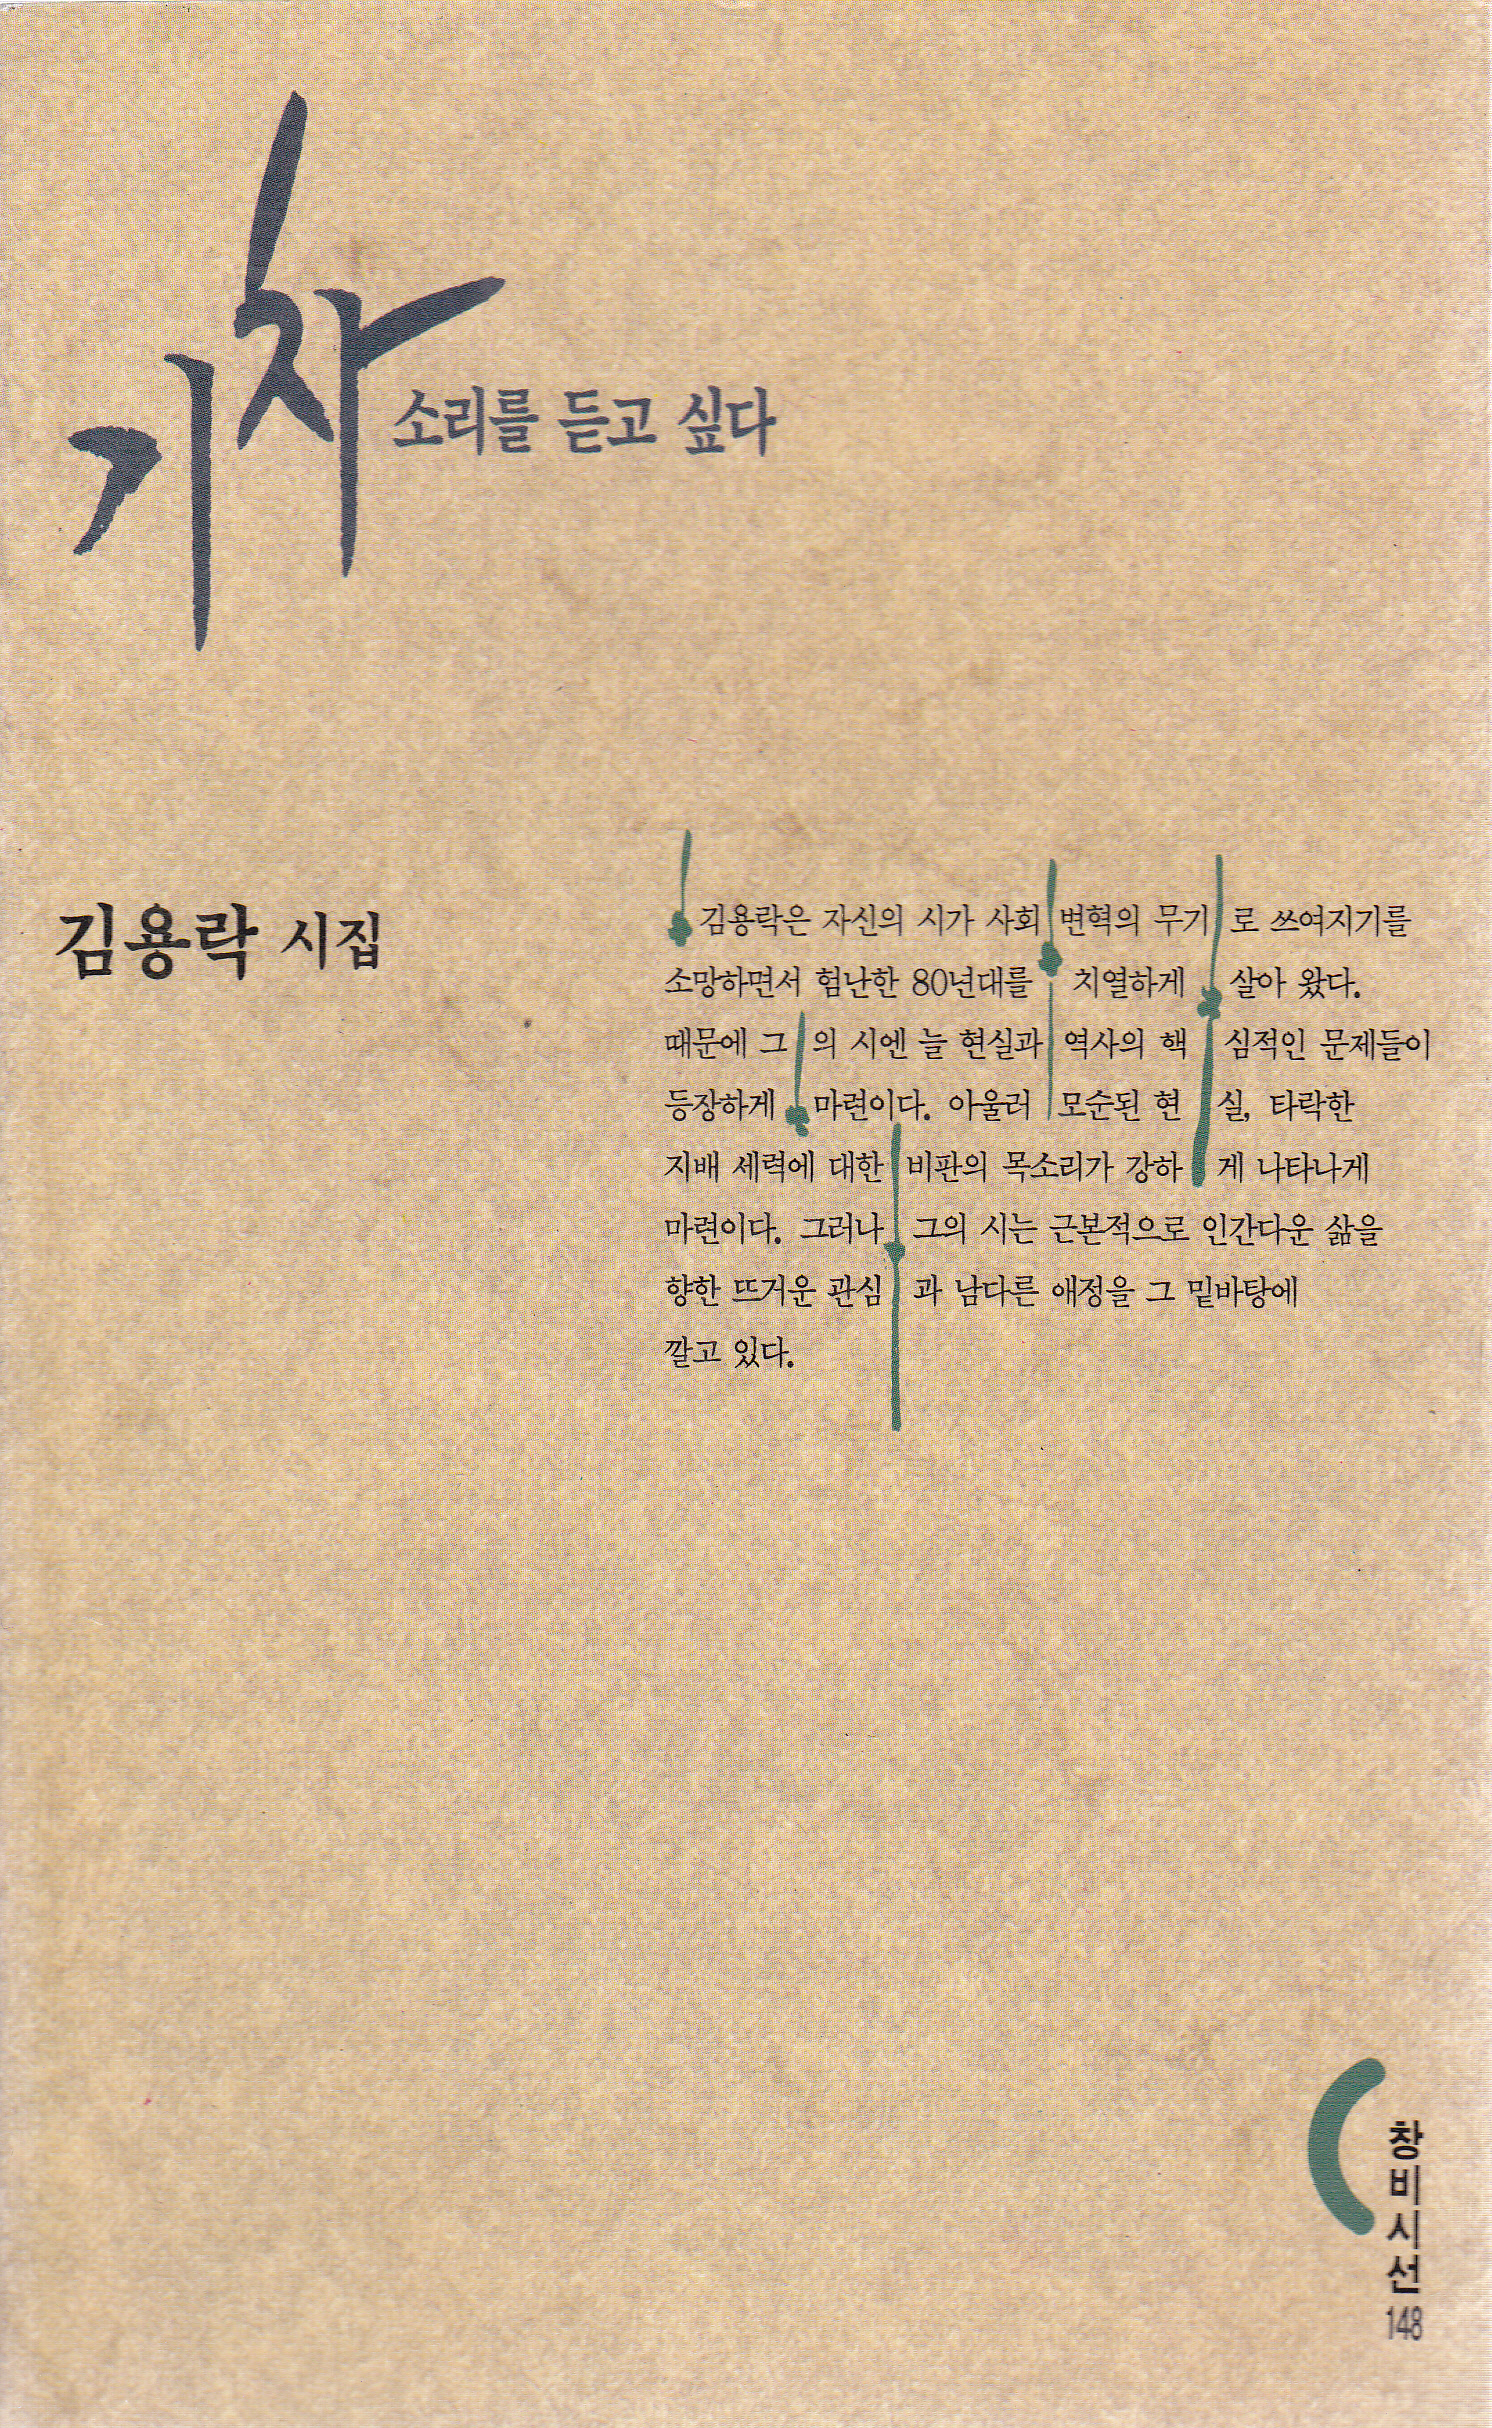 기차
소리를 듣고 싶다
김용락 시집
김용락은 자신의 시가 사회 변혁의 무기로 쓰여지기를
소망하면서 험난한 80년대를 치열하게 살아 왔다.
때문에 그의 시엔 늘 현실과 역사의 핵심적인 문제들이
등장하게 마련이다. 아울러 모순된 현실, 타락한
지배 세력에 대한 비판의 목소리가 강하게 나타나게
마련이다. 그러나 그의 시는 근본적으로 인간다운 삶을
향한 뜨거운 관심과 남다른 애정을 그 밑바탕에
깔고 있다.
창비시선
148